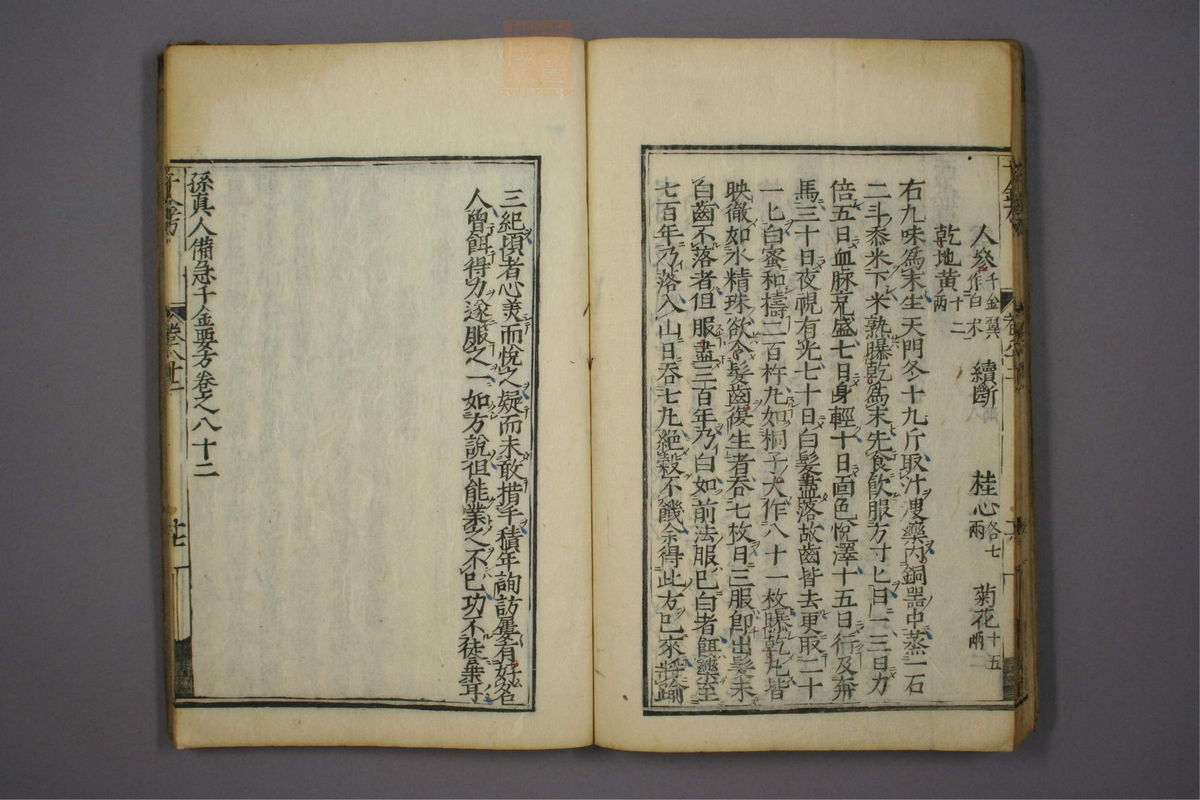 人參千金翼作白朮 續斷 桂心各七兩 菊花十五兩
乾地黃十二兩
右九味為末生天門冬十九斤取汁溲藥內銅器中蒸一石
二斗黍米下米熟曝乾為末先食飲服方寸匕日一三日力
倍五日血脉充盛七日身輕十日面色悅澤十五日行及奔
馬三十日夜視有光七十日白髮盡落故齒皆去更取二十
一匕白蜜和擣二百杵丸如桐子大作八十一枚曝乾丸皆
映徹如水精珠欲令髮齒復生者吞七枚日三服即出髮未
白齒不落者但服盡三百年乃白如前法服巳白者餌藥至
七百年乃落入山日吞七丸絕穀不饑余得此方巳來將踰
三紀頃者心羙而悅之疑而未敢措手積年詢訪屢有好名
人曾餌得力遂服之一如方說但能業之不巳功不徒棄耳
孫真人備急千金要方卷之八十二